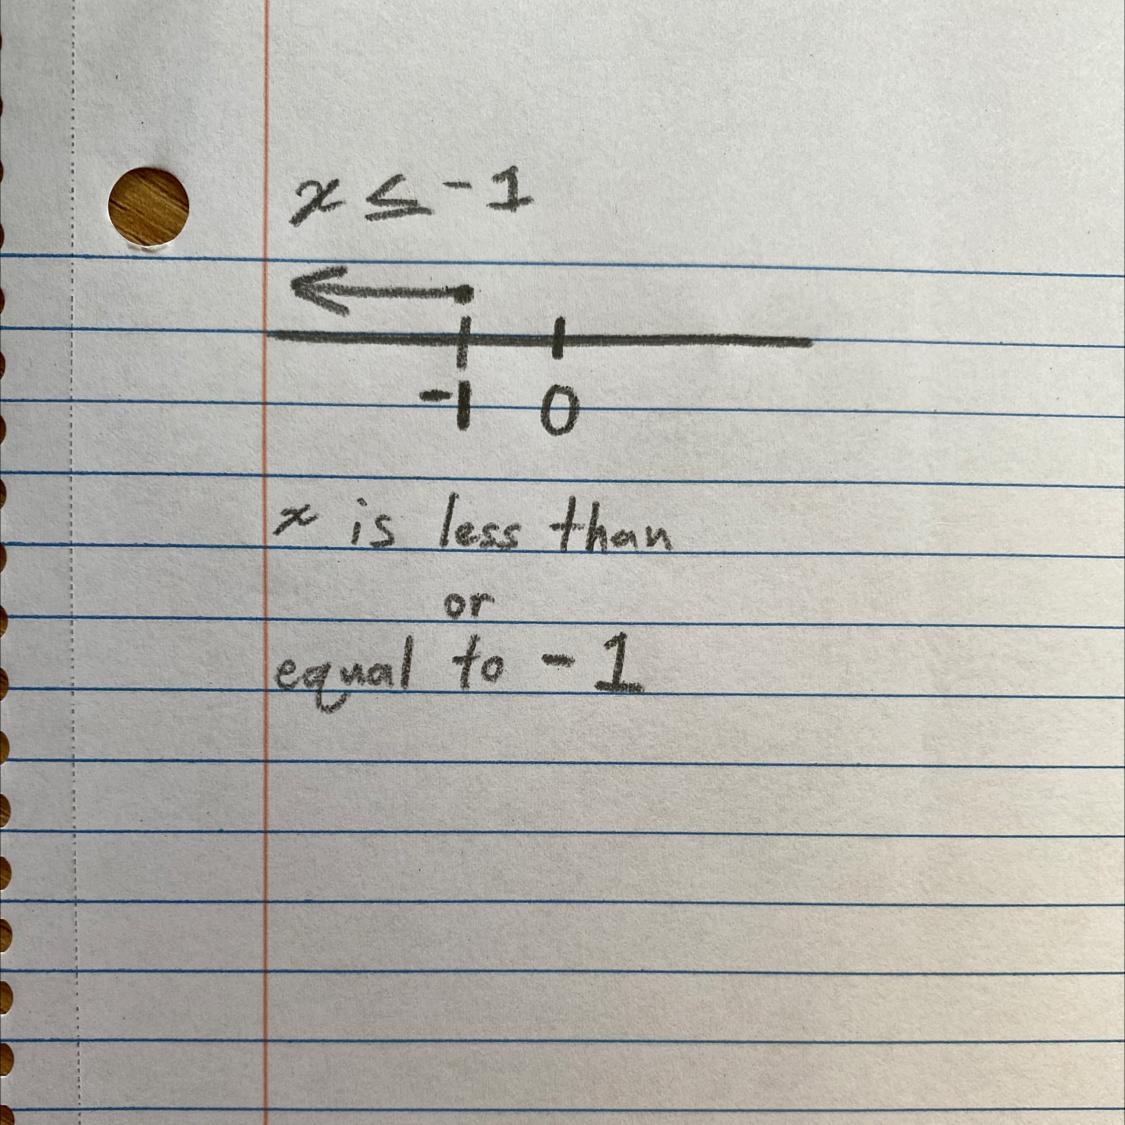 x ≤ -1
-1 0
x is less than
or
equal to -1